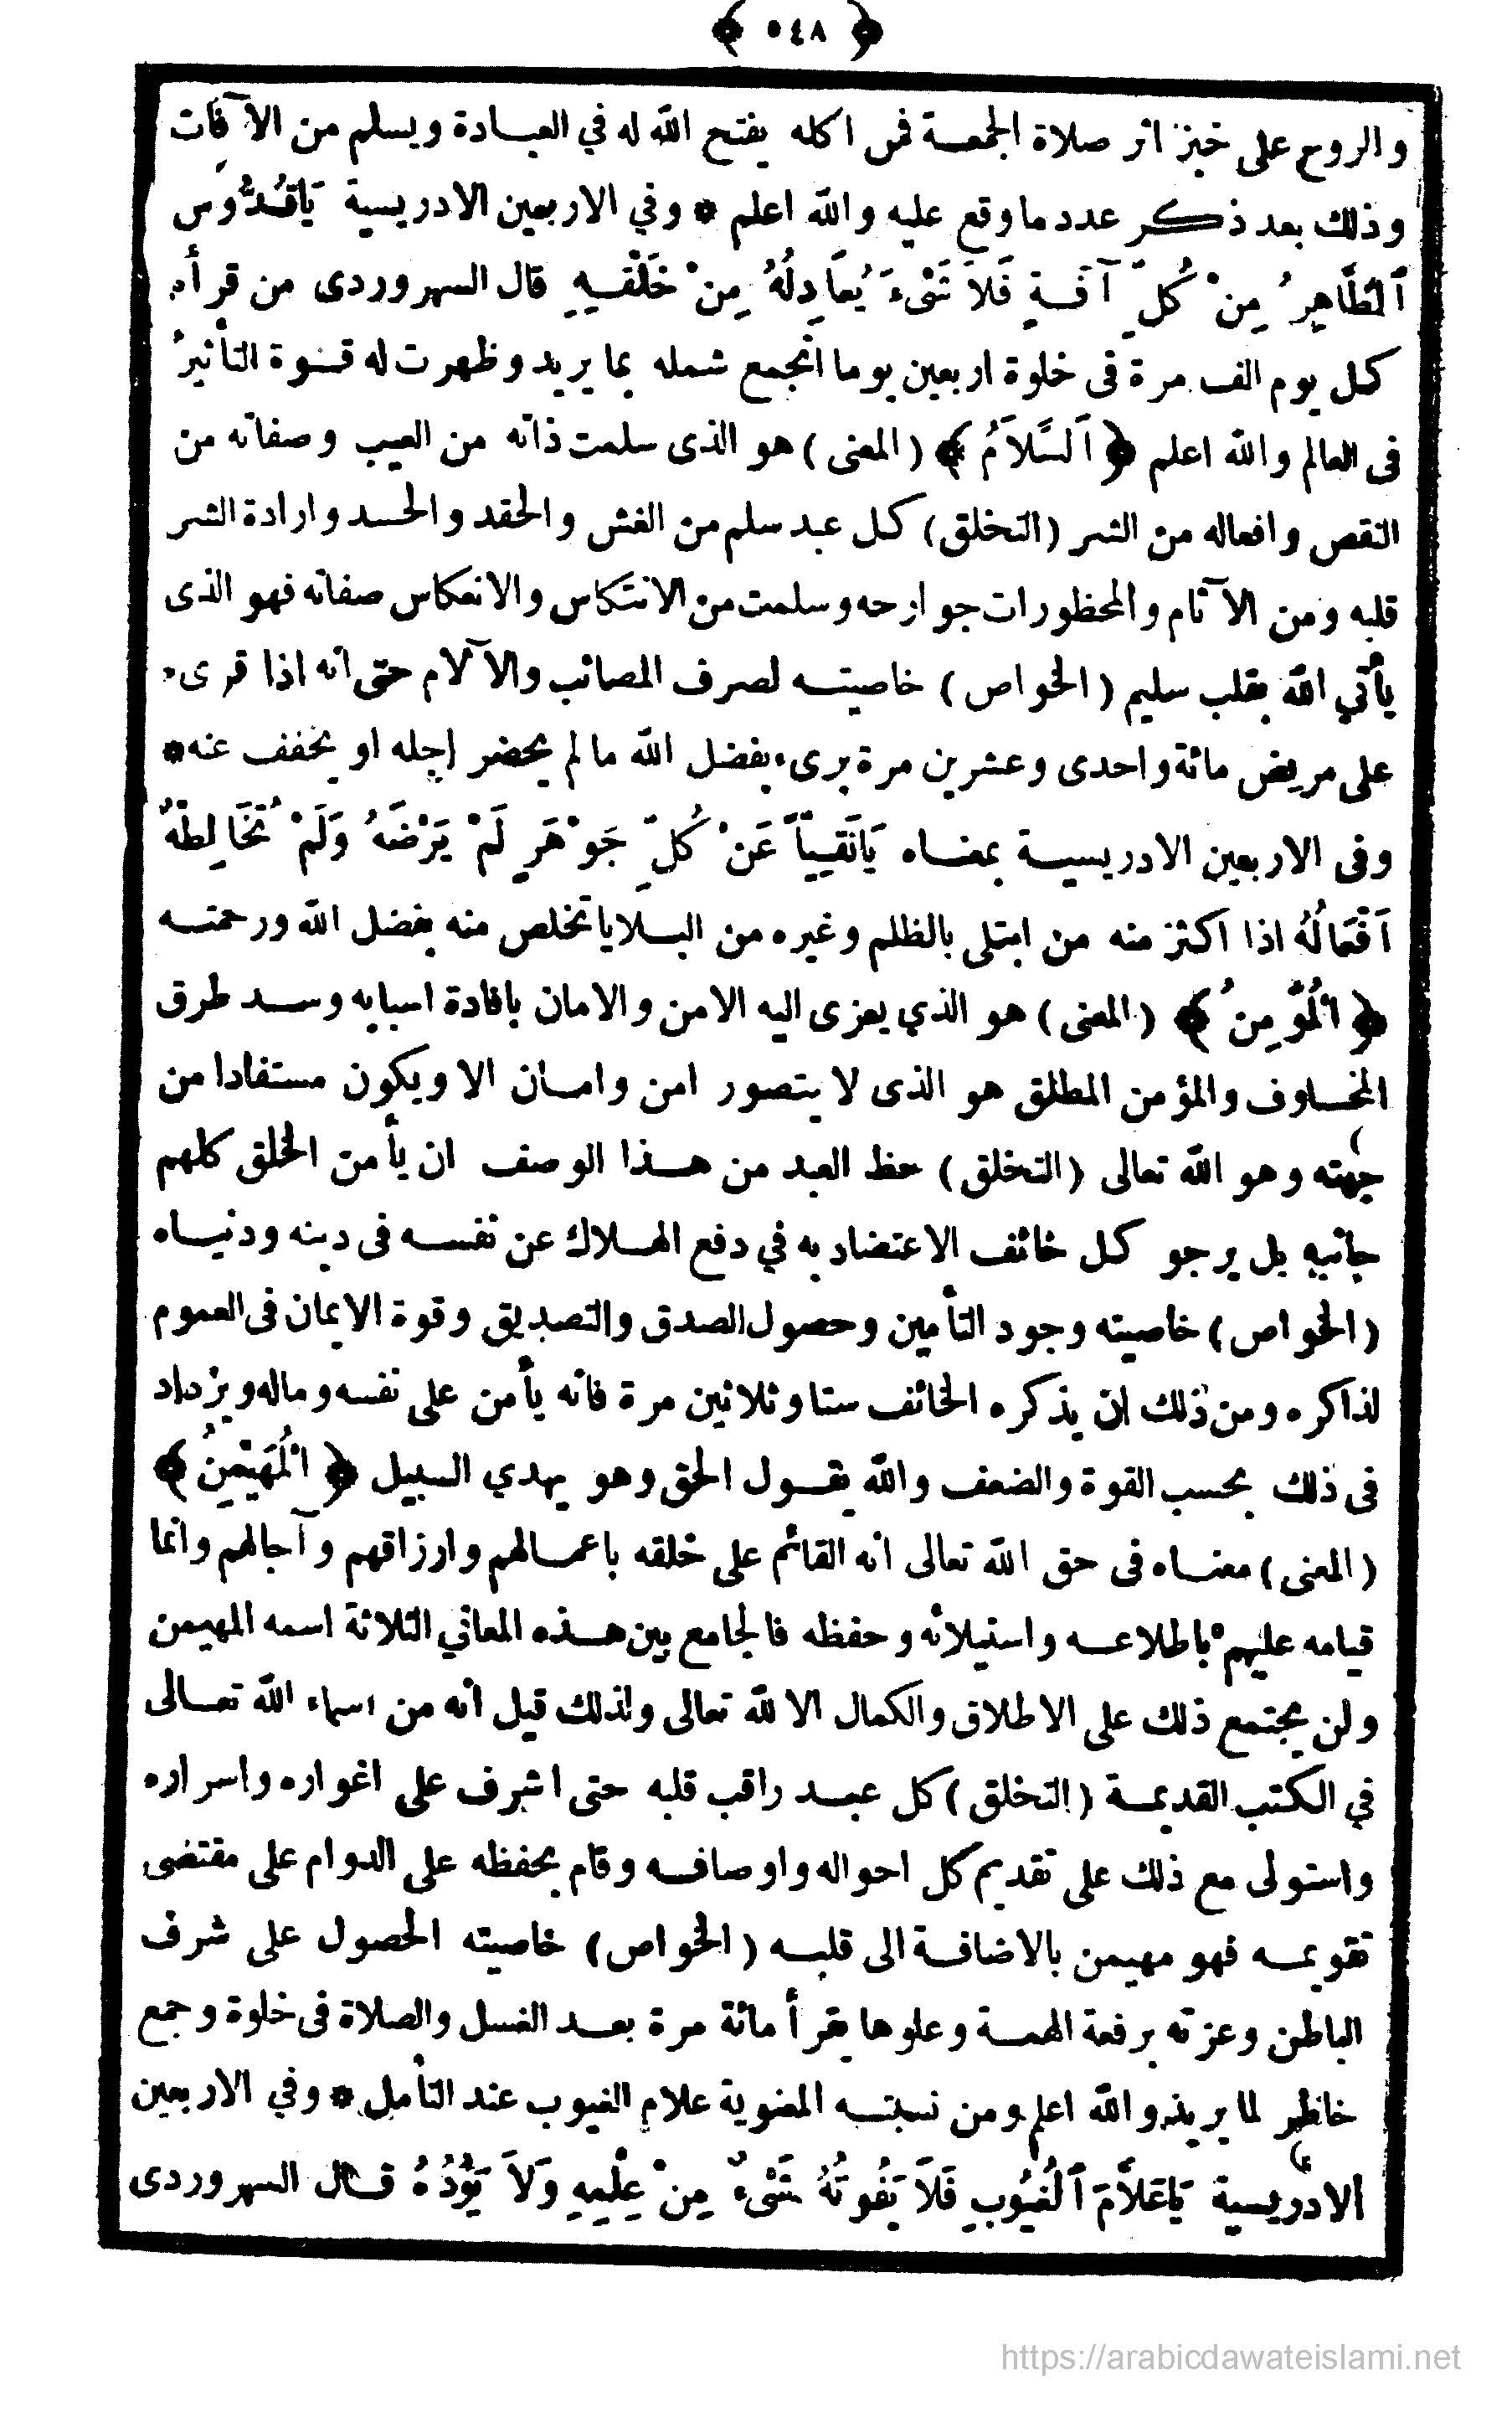 ﴿ ٥٤٨ ﴾
والروح على خبز اثر صلاة الجمعـة فمن اكله يفتح الله له في العبـادة ويسلم من الآفات
وذلك بعد ذكر عدد ما وقع عليه والله اعلم * وفي الاربعين الادريسية يَاقُدُّوس
ٱلطَّاهِرُ مِنْ كُلِّ آفَـةٍ فَلاَ شَىْءَ يُعَادِلُهُ مِنْ خَلْقِـهِ قال السهروردى من قرأه
كـل يوم الف مرة فى خلوة اربعين يوما انجمع شمله بما يريد وظهرت له قـوة التأثير
فى العالم والله اعلم ﴿ اَلسَّلاَمُ ﴾ (المعنى) هو الذى سلمت ذاته من العيب وصفاته من
النقص وافعاله من الشر (التخلق) كـل عبد سلم من الغش والحقد والحسد وارادة الشر
قلبه ومن الآثام والمحظورات جوارحه وسلمت من الانتكاس والانعكاس صفاته فهو الذى
يأتي الله بقلب سليم (الخواص) خاصيتـه لصرف المصائب والآلام حتى انه اذا قرىء
على مريض مائة واحدى وعشرين مرة برىء بفضل الله ما لم يحضر اجله او يخفف عنه *
وفى الاربعين الادريسيـة بمعنـاه يَانَقِيـاًّ عَنْ كُلِّ جَوْهَرٍ لَمْ يَرْضَهُ وَلَمْ تُخَالِطْهُ
اَفْعَالُهُ اذا اكثر منه من ابتلى بالظلم وغيره من البـلايا تخلص منه بفضل الله ورحمتـه
﴿ اَلْمُؤْمِنُ ﴾ (المعنى) هو الذي يعزى اليه الامن والامان بافادة اسبابه وسـد طرق
المخـاوف والمؤمن المطلق هو الذى لا يتصور امن وامـان الا ويكون مستفادا من
جهته وهو الله تعالى (التخلق) حظ العبد من هـذا الوصف ان يأمن الخلق كلهم
جانبه بل يرجو كـل خائف الاعتضاد به في دفع الهـلاك عن نفسـه فى دينه ودنيـاه
(الخواص) خاصيته وجود التأمين وحصول الصدق والتصديق وقوة الايمان فى العموم
لذاكره ومن ذلك ان يذكره الخائف ستا وثلاثين مرة فانه يأمن على نفسه وماله ويزداد
فى ذلك بحسب القوة والضعف والله يقـول الحق وهو يهدي السبيل ﴿ اَلْمُهَيْمِنُ ﴾
(المعنى) معنـاه فى حق الله تعالى انه القائم على خلقه باعمـالهم وارزاقهم وآجالهم وانما
قيامه عليهم باطلاعـه واستيلائه وحفظه فالجامع بين هـذه المعاني الثلاثة اسمه المهيمن
ولن يجتمع ذلك على الاطلاق والكمال الا لله تعالى ولذلك قيل انه من اسماء الله تعـالى
في الكتب القديمـة (التخلق) كل عبـد راقب قلبه حتى اشرف على اغواره واسراره
واستولى مع ذلك على تقديم كل احواله واوصافـه وقام بحفظه على الدوام على مقتضى
تقويمـه فهو مهيمن بالاضافـة الى قلبـه (الخواص) خاصيته الحصول على شرف
الباطن وعزته برفعة الهمـة وعلوها يقرأ مائة مرة بعـد الغسل والصلاة فى خلوة وجمع
خاطر لما يريده والله اعلم ومن نسبتـه المعنوية علام الغيوب عند التأمل * وفي الاربعين
الادريسية يَاعَلاَّمَ ٱلْغُيُوبِ فَلاَ يَفُوتُهُ شَىْءٌ مِنْ عِلْمِهِ وَلاَ يَؤُدُهُ قـال السهروردى
https://arabicdawateislami.net